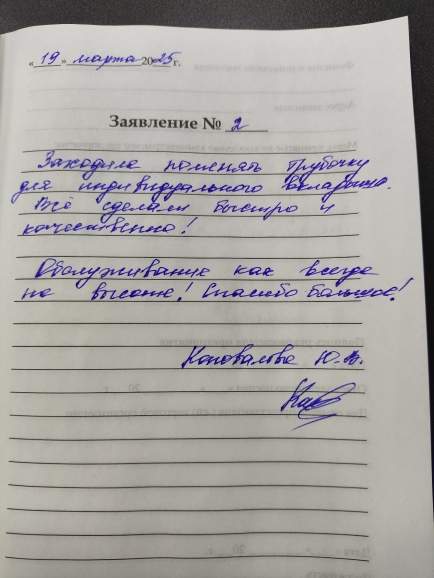 « 19 » марта 2025 г.
Заявление № 2
Заходила поменять трубочку
для индивидуального вкладыша.
Всё сделали быстро и
качественно!
Обслуживание как всегда
на высоте! Спасибо большое!
Коновалова Ю.В.